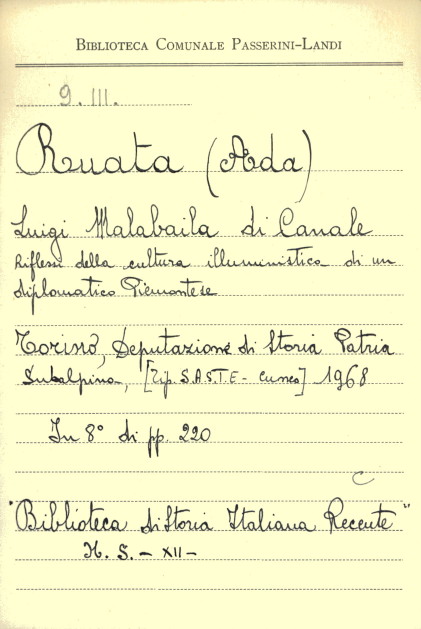 BIBLIOTECA COMUNALE PASSERINI-LANDI
9. III.
Ruata (Ada)
Luigi Malabaila di Canale
Riflessi della cultura illuministica di un
diplomatico Piemontese
Torino, Deputazione di Storia Patria
Subalpina, [Tip. S.A.S.T.E - Cuneo] 1968
In 8° di pp. 220
C
"Biblioteca di Storia Italiana Recente"
N. S. - XII -